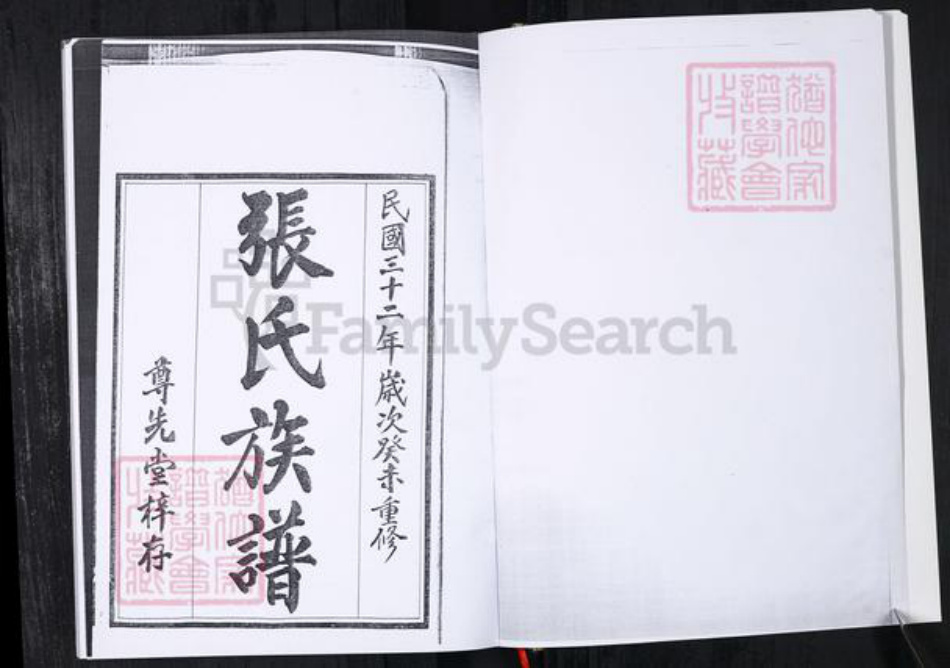 民國三十二年歲次癸未重修
張氏族譜
尊先堂梓存
FamilySearch
猶他家
譜學會
收藏
猶他家
譜學會
收藏